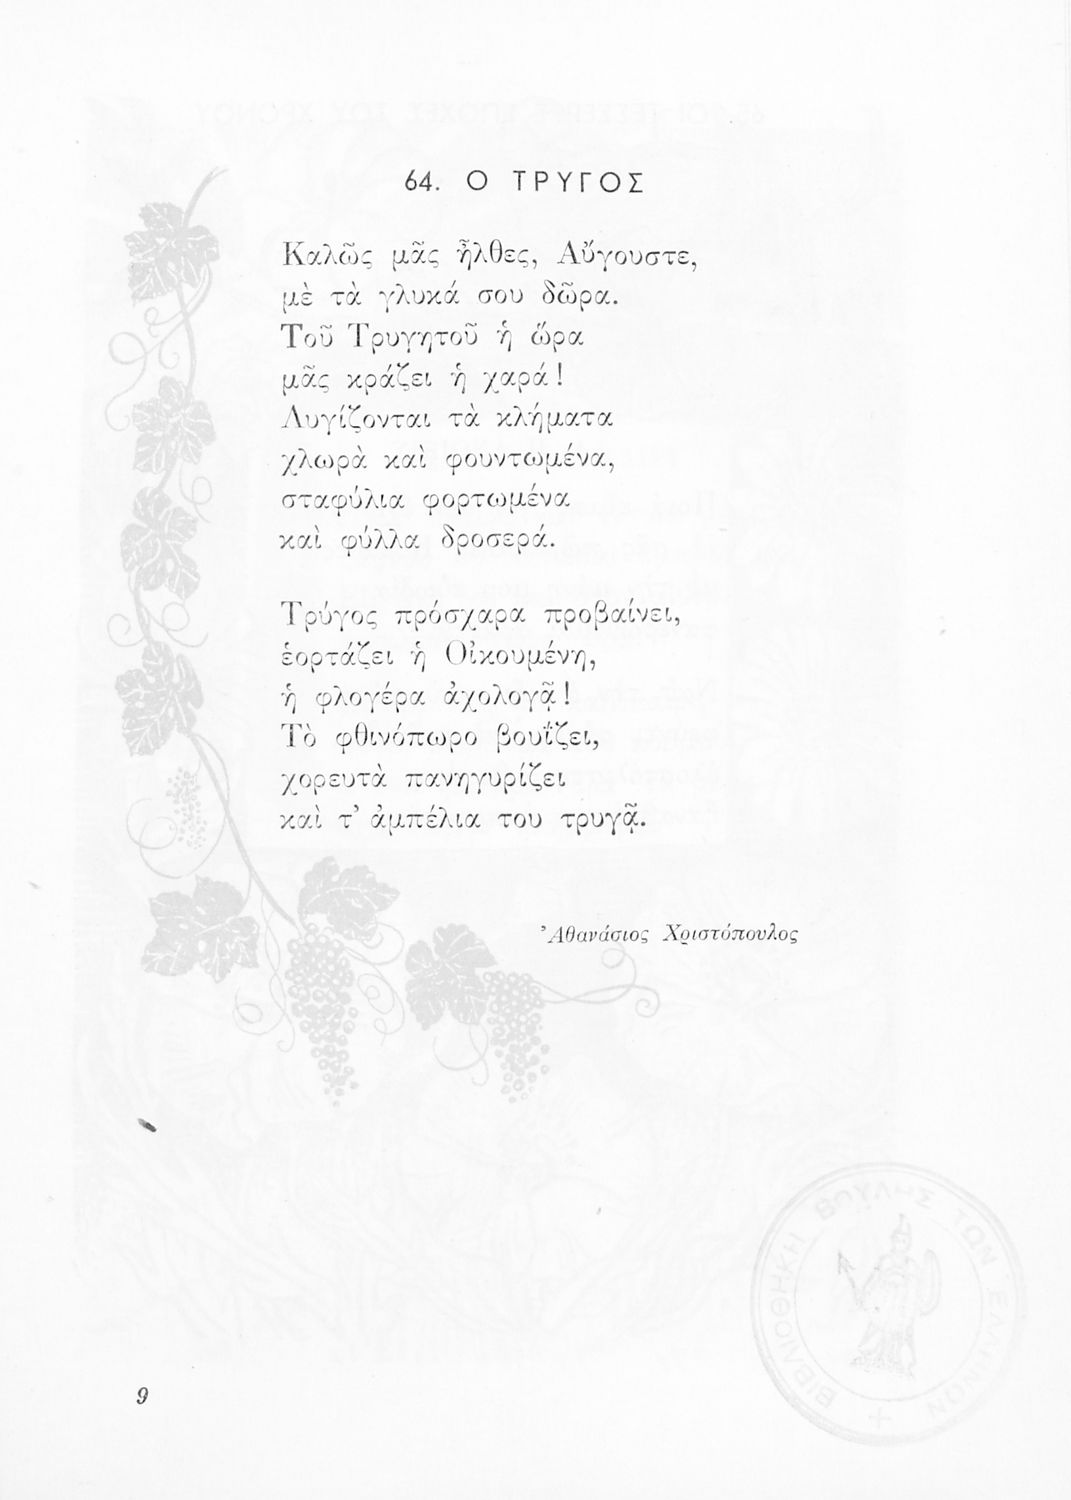 64. Ο ΤΡΥΓΟΣ
Καλῶς μᾶς ἦλθες, Αὔγουστε,
μὲ τὰ γλυκά σου δῶρα.
Τοῦ Τρυγητοῦ ἡ ὥρα
μᾶς κράζει ἡ χαρά!
Λυγίζονται τὰ κλήματα
χλωρὰ καὶ φουντωμένα,
σταφύλια φορτωμένα
καὶ φύλλα δροσερά.
Τρύγος πρόσχαρα προβαίνει,
ἑορτάζει ἡ Οἰκουμένη,
ἡ φλογέρα ἀχολογᾷ!
Τὸ φθινόπωρο βουΐζει,
χορευτὰ πανηγυρίζει
καὶ τ’ ἀμπέλια του τρυγᾷ.
Ἀθανάσιος Χριστόπουλος
ΒΙΒΛΙΟΘΗΚΗ ΒΟΥΛΗΣ ΤΩΝ ΕΛΛΗΝΩΝ
9